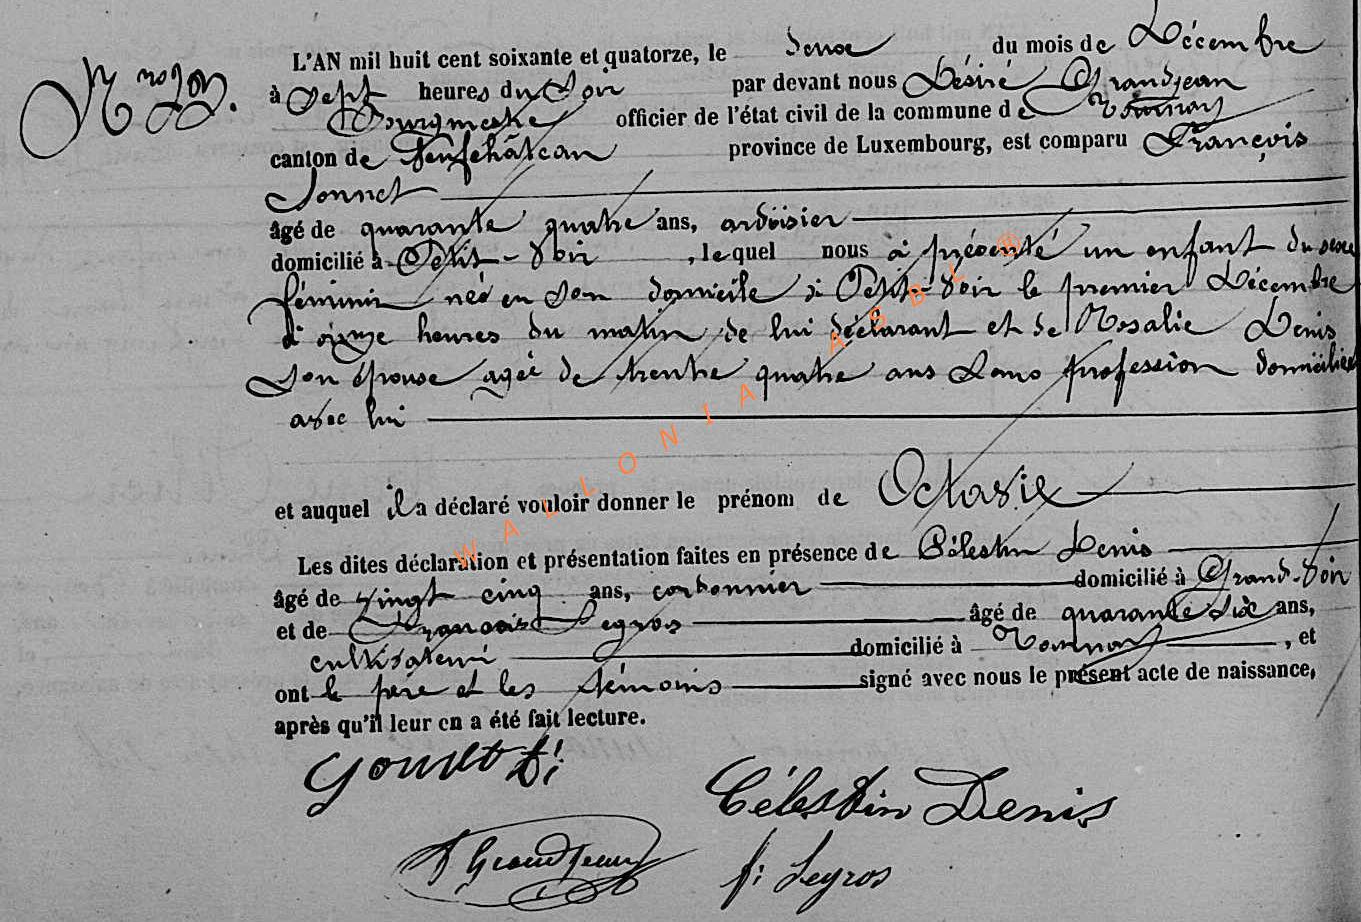 L'AN mil huit cent soixante et quatorze, le deux du mois de Décembre
à Sept heures du Soir par devant nous Désiré Grandjean
Bourgmestre officier de l'état civil de la commune de Tournay
canton de Neufchâteau province de Luxembourg, est comparu François
âgé de quarante quatre ans, ardoisier
domicilié à Petit-Voir, lequel nous à présenté un enfant du sexe
féminin née en Son domicile à Petit-Voir le premier Décembre
à onze heures du matin, de lui déclarant et de Rosalie Denis
Son épouse agée de trente quatre ans Sans profession domiciliée
avec lui
et auquel il a déclaré vouloir donner le prénom de Octavie
Les dites déclaration et présentation faites en présence de Célestin Denis
âgé de vingt cinq ans, cordonnier domicilié à Grand-Voir
et de François Legros âgé de quarante six ans,
cultivateur domicilié à Tournay, et
ont le père et les témoins signé avec nous le présent acte de naissance,
après qu'il leur en a été fait lecture.
Célestin Denis
Grandjean
f: Legros
WALLONIA ASBL ®